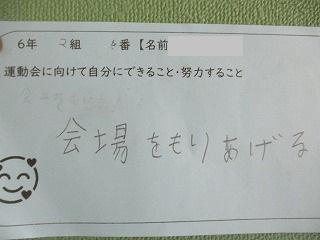 6年 2組 番【名前
運動会に向けて自分にできること・努力すること
会場をもりあげる